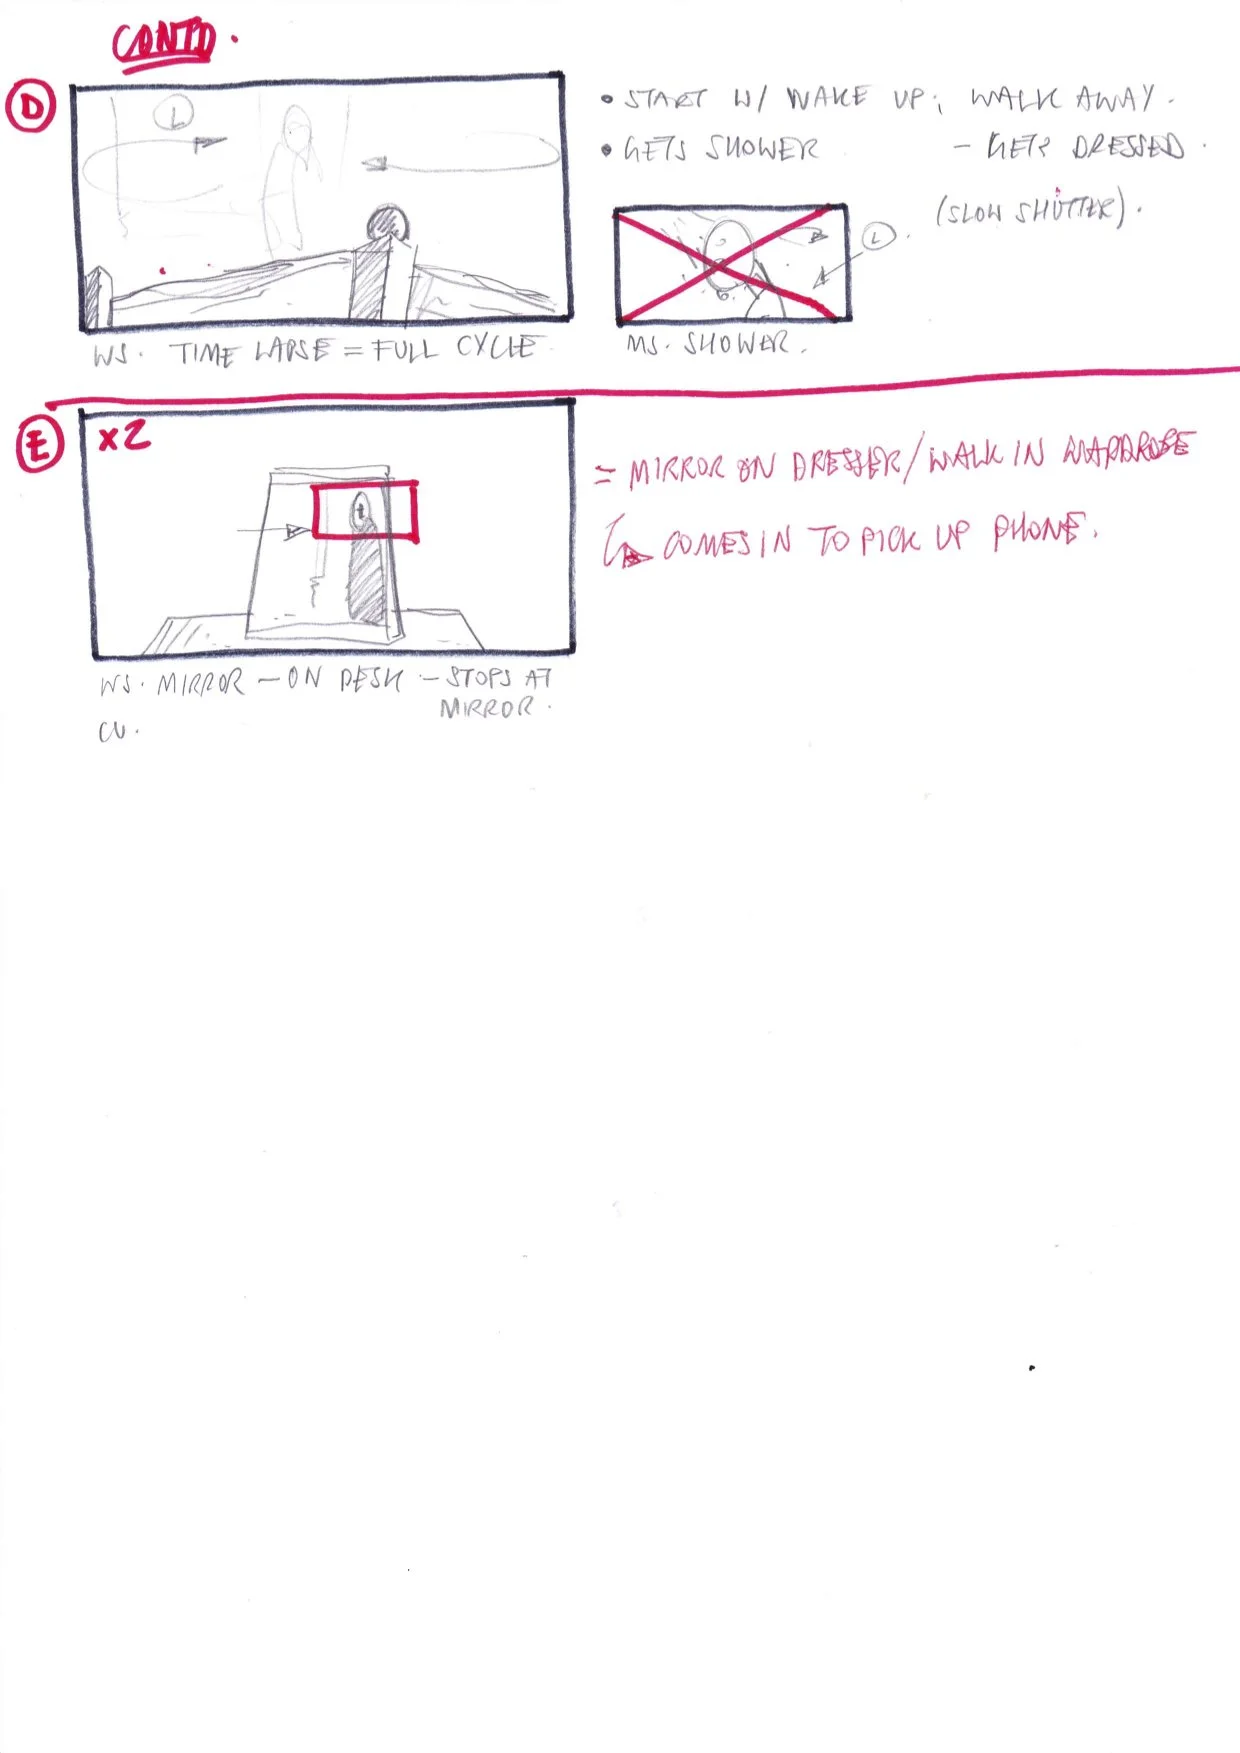 CONTD.
D
• START W/ WAKE UP; WALK AWAY.
L
• GETS SHOWER - GETS DRESSED.
(SLOW SHUTTER).
L.
WS. TIME LAPSE = FULL CYCLE.
MS. SHOWER.
E
x2
= MIRROR ON DRESSER/WALK IN WARDROBE
COMES IN TO PICK UP PHONE.
WS. MIRROR - ON DESK - STOPS AT
MIRROR.
CU.